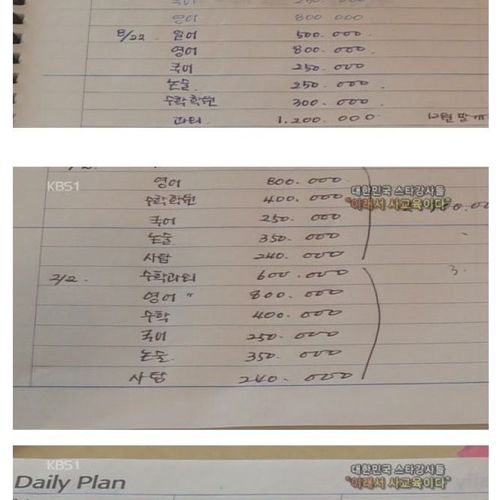 국어 250.000
영어 800.000
8/22. 일어 500.000
영어 800.000.
국어 250.000
논술. 250.000.
수학학원 300.000.
과외 1.200.000 12월 말까
KBS1
영어 800.000
대한민국 스타강사들
수학학원 400.000
"이래서 사교육이다"
국어 250.000
논술 350.000
사탐 240.000
2/2. 수학과외 600.000 3.
영어 " 800.000
수학 400.000
국어 250.000
논술. 350.000
사탐 240.000
KBS1
대한민국 스타강사들
Daily Plan
"이래서 사교육이다"